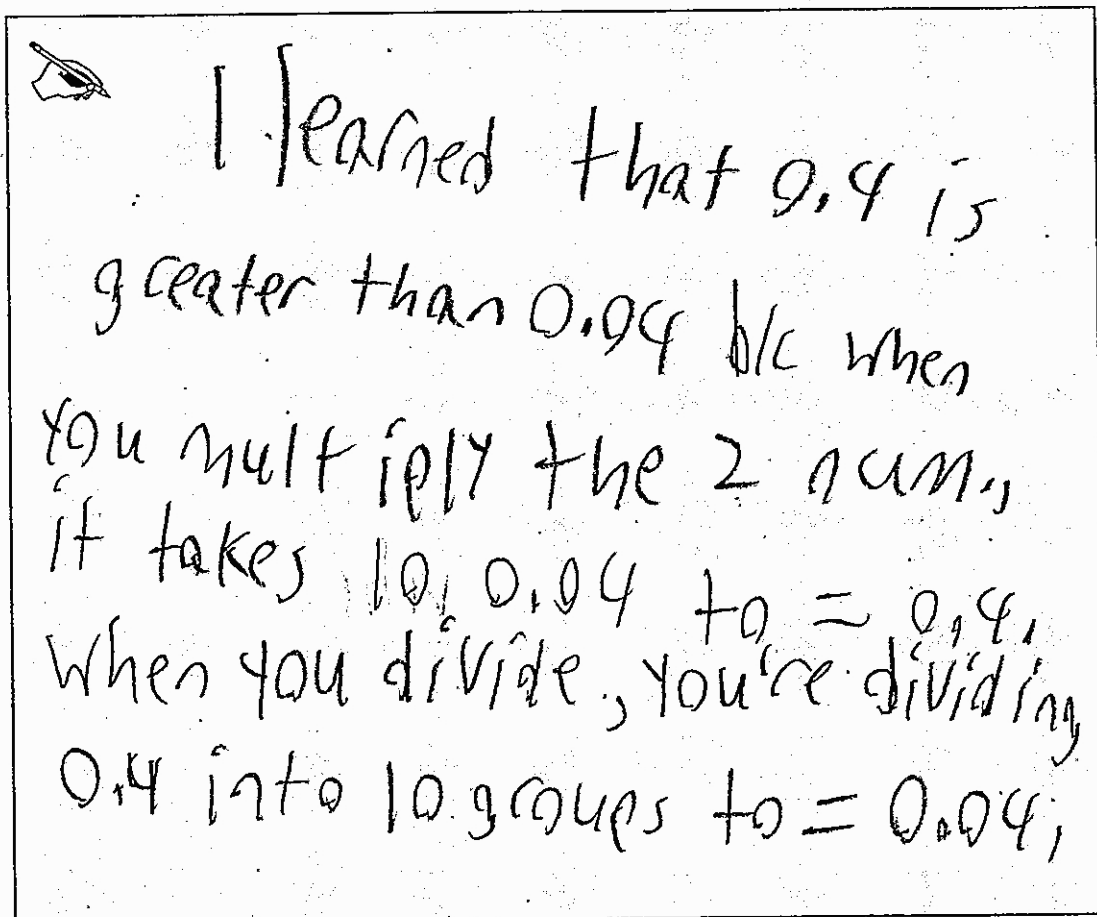 I learned that 0.4 is
greater than 0.04 b/c when
you multiply the 2 num.,
it takes 10, 0.04 to = 0.4.
When you divide, you're dividing
0.4 into 10 groups to = 0.04.